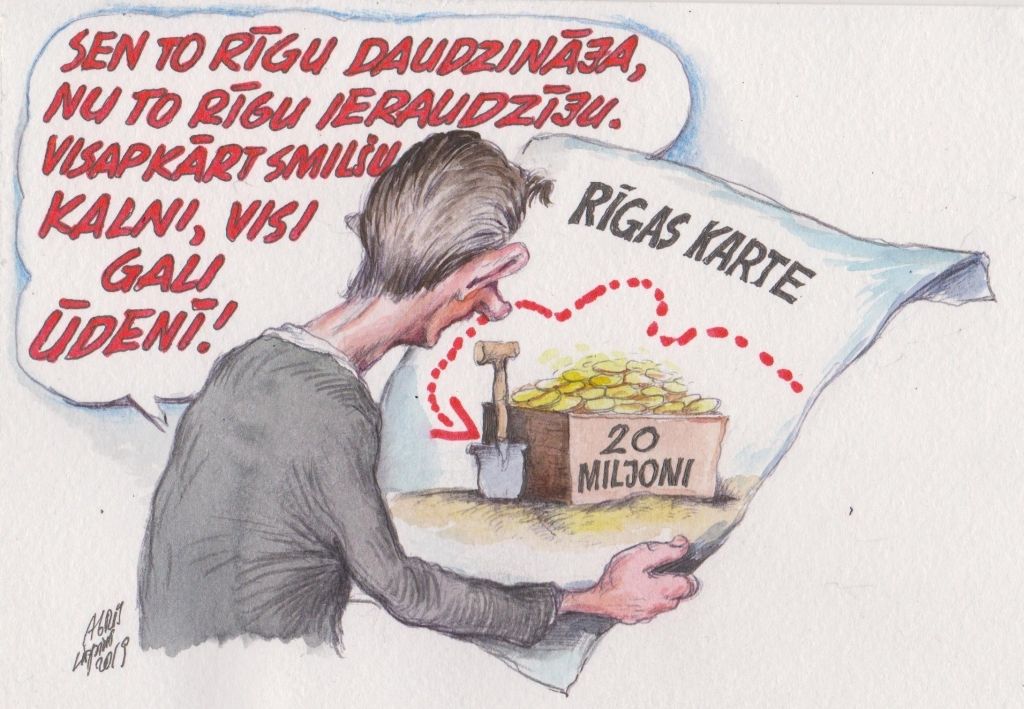 SEN TO RĪGU DAUDZINĀJA,
NU TO RĪGU IERAUDZĪJU.
VISAPKĀRT SMILŠU
KALNI, VISI
GALI
ŪDENĪ!
RĪGAS KARTE
20
MILJONI
AGRIS
LIEPIŅŠ
2019